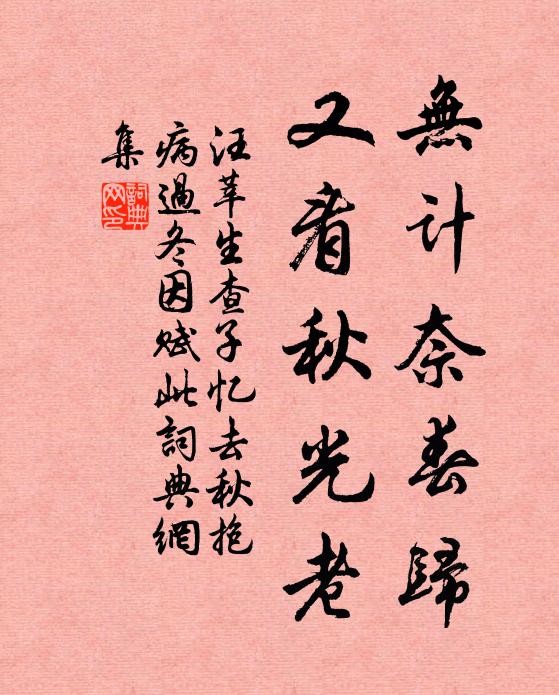 無计奈春歸
又看秋光老
汪莘生查子忆去秋抱
病過冬因赋此詞典網
集
詞典
网印